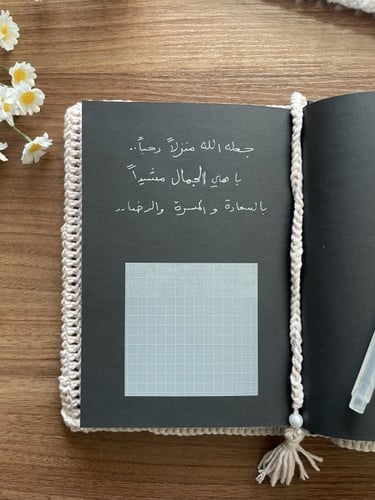 جعله الله منزلاً رحباً..
باهي الجمال مشيداً
بالسعادة و المسرة والرضا..